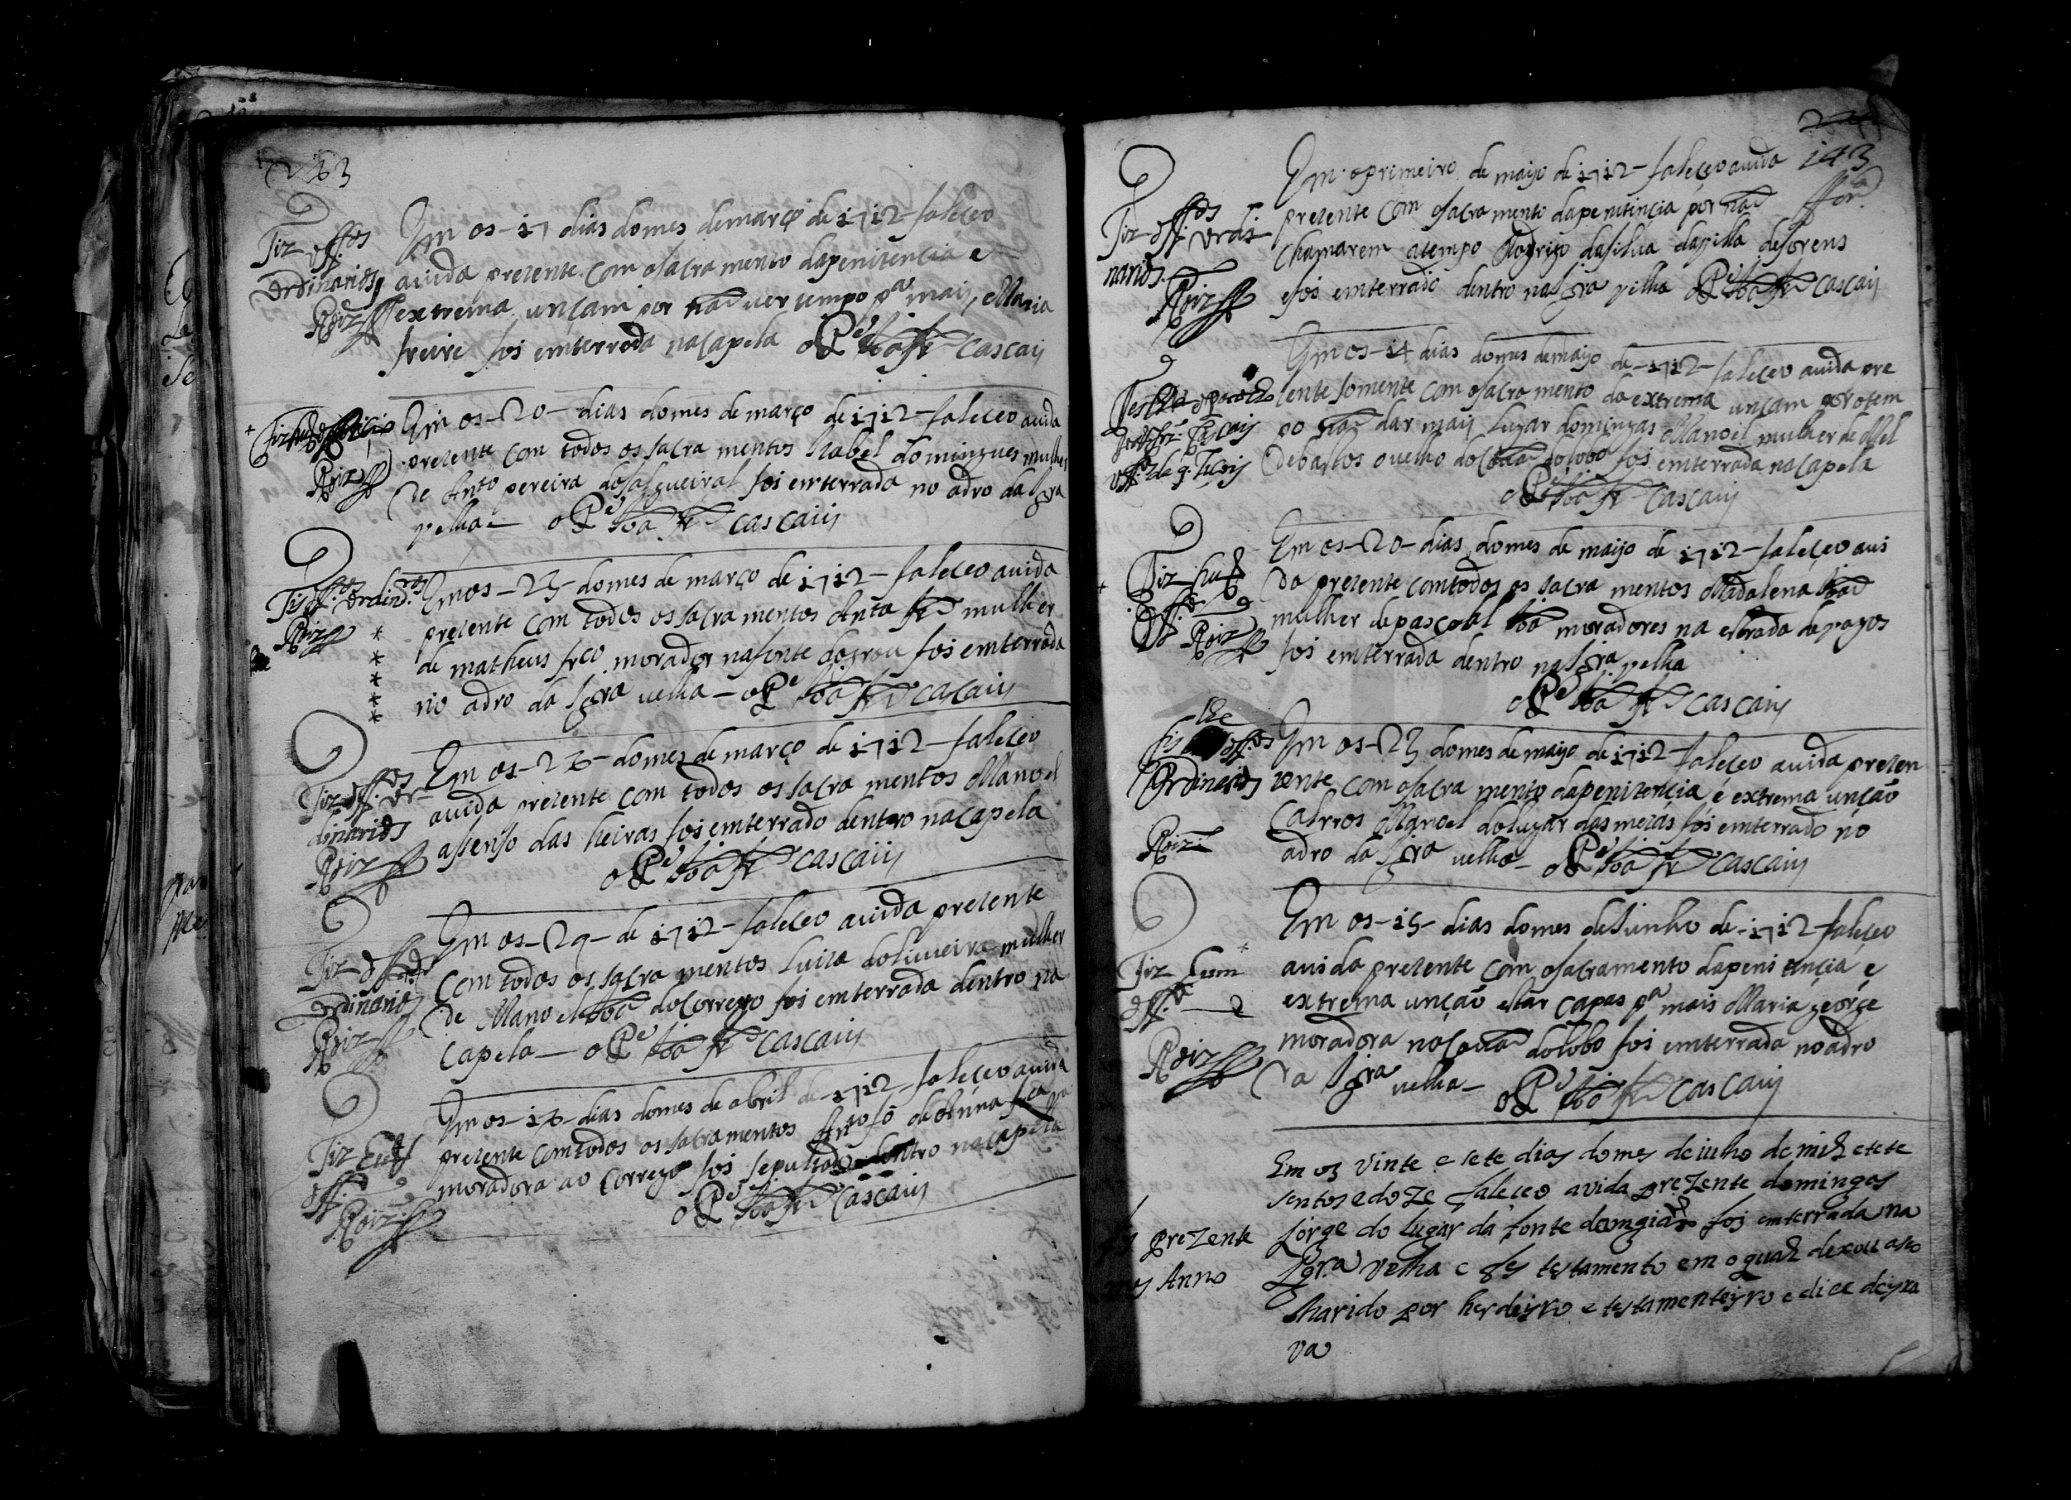 Em os - 17 dias domes demarço de 1712 - faleceo
Tiz off.os
ordinarios
Roiz
auida prezente com osacramento dapenitencia e
extrema unçam por não uer tempo p.a mais, Maria
freire foi emterrada nacapela o P.e João fr.a cascais
Em os - 20 - dias domes de março de 1712 - faleceo auida
Roiz
prezente com todos os sacramentos Izabel domingues mulher
de Ant.o pereira dosalgueiral foi emterrada no adro da Igra
velha - o P.e João fr.a cascais
Tis off.os ordin.ros
Roiz
Em os - 23 - domes de março de 1712 - faleceo auida
prezente com todos os sacramentos Anta fr.a mulher
de matheus fr.co morador nafonte dogrou foi emterrada
no adro da Igra velha - o P.e João fr.a cascais
Tiz off.os or-
dinarios
Roiz
Em os - 26 - domes de março de 1712 - faleceo
auida prezente com todos os sacramentos Manoel
asenso das heiras foi emterrado dentro nacapela
o P.e João fr.a cascais
Tiz off.os
ordinarios
Roiz
Em os - 29 - de 1712 - faleceo auida prezente
com todos os sacramentos Luiza doliueira mulher
de Manoel João docorrego foi emterrada dentro na
capela - o P.e João fr.a cascais
Tiz
off.o
Roiz
Em os - 16 - dias domes de abril de - 1712 - faleceo auida
prezente comtodos os sacramentos
moradora ao corrego foi sepultada dentro nacapella
o P.e João fr.a Cascais
143
Em oprimeiro de maijo de 1712 - faleceo auida
Tiz off.os ordi-
narios
Roiz
prezente com osacramento dapenitencia por não
chamarem atempo Rodrigo dasilua dapilla desorens
efoi emterrado dentro naIgra velha o P.e João fr.a cascais
Em os - 14 dias domes demaijo de - 1712 - faleceo auida pre
zente somente com osacramento da extrema unçam por otem
po não dar mais lugar domingas Manoel mulher de M.el
debastos ouelho docouão dolobo foi emterrada nacapela
o P.e João fr.a cascais
Em os - 20 - dias domes de maijo de 1712 - faleceo aui
Tiz
Roiz
da prezente comtodos os sacramentos Madalena João
mulher depascoal João moradores na estrada dapagos
foi emterrada dentro naIgra velha
o P.e João fr.a cascais
lhe
fis off.os
ordinarios
Roiz
Em os - 23 domes de maijo de 1712 - faleceo auida prezen
zente com osacramento dapenitencia e extrema unção
Calrros Manoel dolugar das mezas foi emterrado no
adro da Igra velha - o P.e João fr.a cascais
Tiz hum
off.o
Roiz
Em os - 15 - dias domes deJunho de - 1712 - faleceo
auida prezente com osacramento dapenitencia e
extrema unção estar capas p.a mais Maria george
moradora nocouão dolobo foi emterrada noadro
da Igra velha - o P.e João fr.a cascais
Em os vinte e sete dias domes deiulho de mil e sete
sentos e doze faleceo avida prezente domingas
jorge do lugar da fonte foi emterrada na
prezente
Anno
Igr.a velha e fes testamento em o qual dexou aseo
Marido por herdeiro e testamenteyro e dice deyxa
va